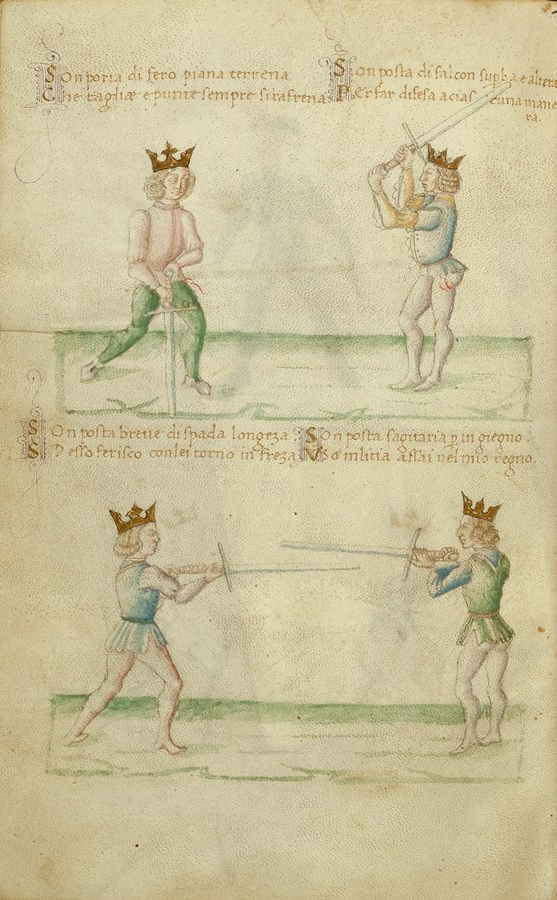 Son porta di fero piana terrena
Che tagli e e punte sempre si rafrena
Son posta di falcon supba e altera
Per far difesa a cias euna mane
ra.
Son posta breue di spada longeza
Spesso ferisco con lei torno in freza
Son posta sagitaria p in giegno
Vso militia assai nel mio regno.